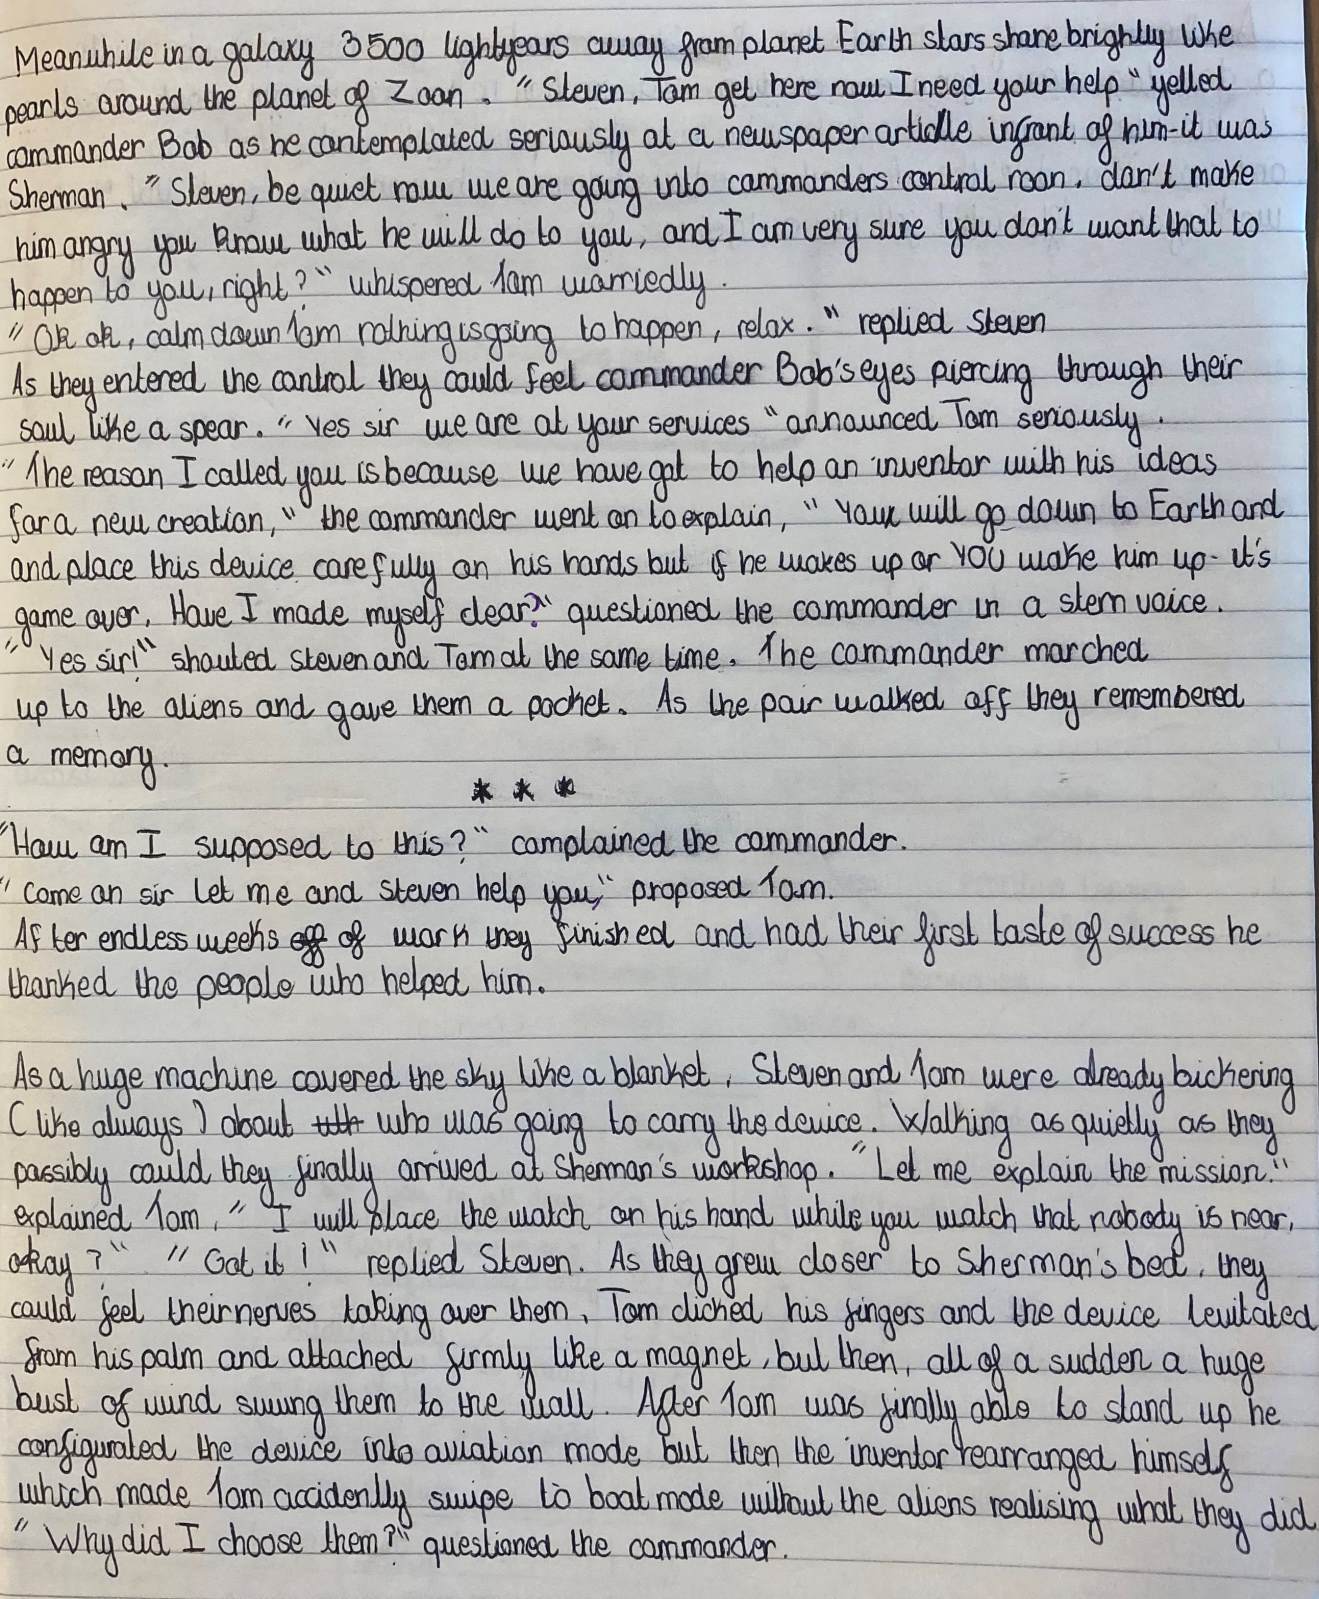 Meanwhile in a galaxy 3500 lightyears away from planet Earth stars shone brightly like
pearls around the planet of Zoon. "Steven, Tom get here now I need your help" yelled
commander Bob as he contemplated seriously at a newspaper article infront of him-it was
Sherman. "Steven, be quiet now we are going into commanders control room. don't make
him angry you know what he will do to you, and I am very sure you don't want that to
happen to you, right?" whispered Tom worriedly.
"Ok ok, calm down Tom nothing is going to happen, relax." replied Steven
As they entered the control they could feel commander Bob's eyes piercing through their
soul like a spear. "Yes sir we are at your services" announced Tom seriously.
"The reason I called you is because we have got to help an inventor with his ideas
for a new creation," the commander went on to explain, "You will go down to Earth and
and place this device carefully on his hands but if he wakes up or YOU wake him up- it's
game over. Have I made myself clear?" questioned the commander in a stern voice.
"Yes sir!" shouted Steven and Tom at the same time. The commander marched
up to the aliens and gave them a pocket. As the pair walked off they remembered
a memory.
* * *
"How am I supposed to this?" complained the commander.
"Come on sir let me and Steven help you," proposed Tom.
After endless weeks of work they finished and had their first taste of success he
thanked the people who helped him.
As a huge machine covered the sky like a blanket, Steven and Tom were already bickering
(like always) about who was going to carry the device. Walking as quietly as they
possibly could they finally arrived at Sherman's workshop. "Let me explain the mission."
explained Tom, "I will place the watch on his hand while you watch that nobody is near,
okay?" "Got it!" replied Steven. As they grew closer to Sherman's bed, they
could feel their nerves taking over them, Tom cliched his fingers and the device levitated
from his palm and attached firmly like a magnet, but then, all of a sudden a huge
bust of wind swung them to the wall. After Tom was finally able to stand up he
configurated the device into aviation mode but then the inventor rearranged himself
which made Tom accidently swipe to boat mode without the aliens realising what they did.
"Why did I choose them?" questioned the commander.